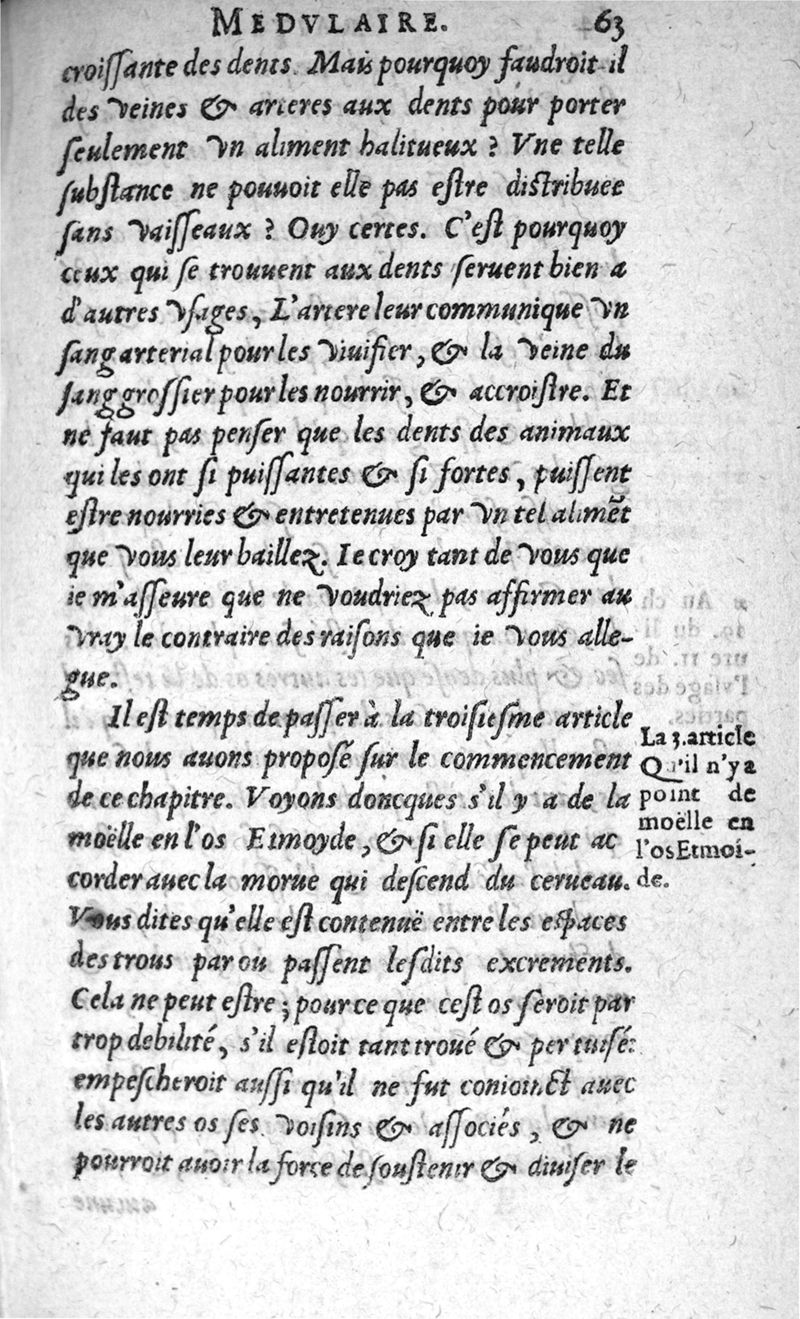 MEDVLAIRE. 63
croiſſante des dents. Mais pourquoy faudroit il
des veines & arteres aux dents pour porter
ſeulement vn aliment halitueux ? Vne telle
ſubſtance ne pouuoit elle pas eſtre diſtribuee
ſans vaiſſeaux ? Ouy certes. C'eſt pourquoy
ceux qui ſe trouuent aux dents ſeruent bien a
d'autres vſages, L'artere leur communique vn
ſang arterial pour les viuifier, & la veine du
ſang groſſier pour les nourrir, & accroiſtre. Et
ne faut pas penſer que les dents des animaux
qui les ont ſi puiſſantes & ſi fortes, puiſſent
eſtre nourries & entretenues par vn tel alimẽt
que vous leur baillez. Ie croy tant de vous que
ie m'aſſeure que ne voudriez pas affirmer au
vray le contraire des raiſons que ie vous alle-
gue.
Il eſt temps de paſſer à la troiſieſme article
que nous auons propoſé ſur le commencement
de ce chapitre. Voyons doncques s'il y a de la
moëlle en l'os Etmoyde, & ſi elle ſe peut ac
corder auec la morue qui deſcend du cerueau.
Vous dites qu'elle eſt contenuë entre les eſpaces
des trous par ou paſſent leſdits excrements.
Cela ne peut eſtre ; pour ce que ceſt os ſeroit par
trop debilité, s'il eſtoit tant troué & pertuiſé:
empeſcheroit auſſi qu'il ne fut conioinct auec
les autres os ſes voiſins & aſſociés, & ne
pourroit auoir la force de ſouſtenir & diuiſer le
La 3. article
Qu'il n'y a
point de
moëlle en
l'os Etmoi-
de.